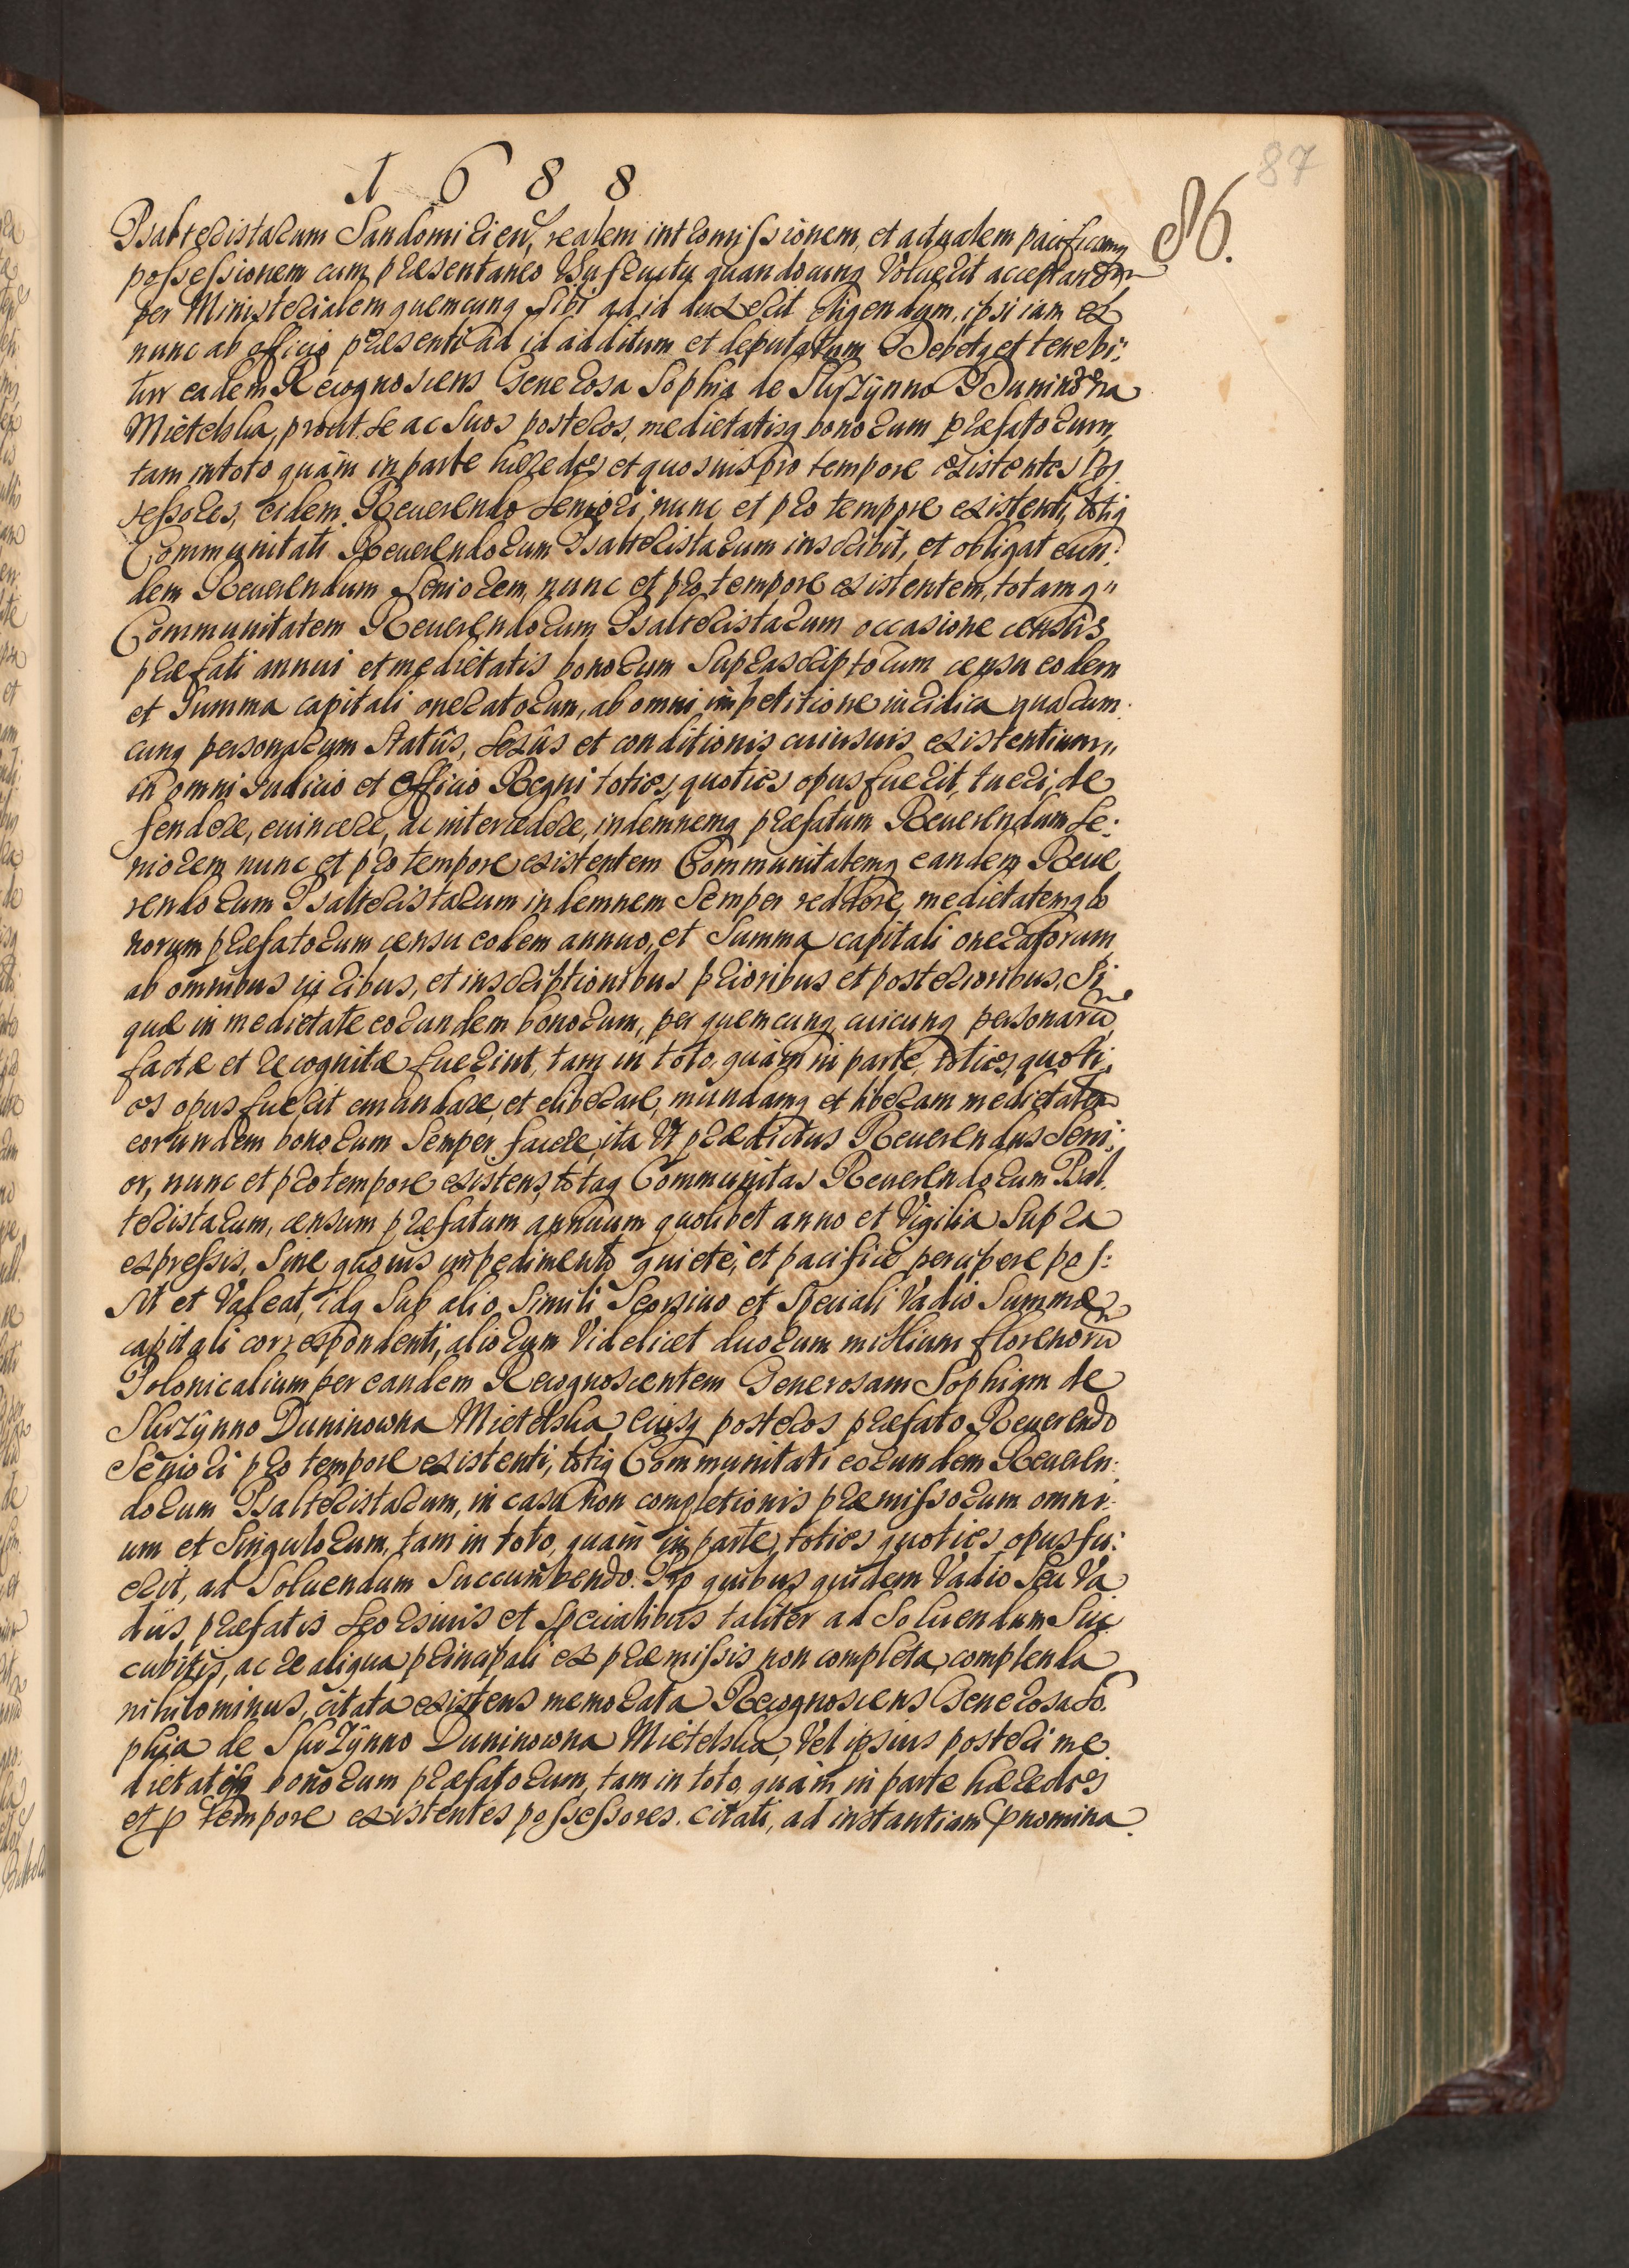 87
1688
86.
Psalteristarum Sandomirien, realem intromissionem, et actualem pacificamq
possessionem cum præsentaneo Usufructu quandocunq Voluerit acceptandam
per Ministerialem quemcunq sibi ad id duxerit eligendum, ipsi iam ex
nunc ab officio præsenti ad id additum et deputatum Debetq et tenebi:
tur eadem Recognoscens Generosa Sophia de Skrzÿnno Duninowna
Mietelska, prout se ac suos posteros, medietatisq bonorum præfatorum
tam in toto quàm in parte hæredes et quosuis pro tempore existentes Pos
sessores, eidem Reuerendo Seniori, nunc et pro tempore existenti, totiq
Communitati Reuerendorum Psalteristarum inscribit, et obligat eun:
dem Reuerendum Seniorem, nunc et pro tempore existentem, totamq
Communitatem Reuerendorum Psalteristarum occasione censûs
præfati annui et medietatis bonorum Suprascriptorum censu eodem
et Summa capitali oneratorum, ab omni impetitione iuridica quarum
cunq personarum Statûs, Sexûs et conditionis cuiusuis existentium
in omni Iudicio et Officio Regni toties, quoties opus fuerit, tueri, de
fendere, euincere, ac intercedere, indemnemq præfatum Reuerendum Se:
niorem nunc et pro tempore existentem Communitatemq eandem Reue
rendorum Psalteristarum indemnem Semper reddere, medietatemq bo
norum præfatorum censu eodem annuo, et Summa capitali oneratorum
ab omnibus iuribus, et inscriptionibus prioribus et posterioribus, Si
quæ in medietate eorundem bonorum, per quemcunq cuicunq personarũ
factæ et recognitæ fuerint, tam in toto, quàm in parte, toties, quoti:
es opus fuerit emundare, et eliberare, mundamq et liberam medietatem
eorundem bonorum Semper facere, ita Vt prædictus Reuerendus Seni:
or, nunc et pro tempore existens, totaq Communitas Reuerendorum Psal
teristarum, censum præfatum annuum quolibet anno et Vigilia Supra
expressis, Sine quouis impedimento quietè, et pacificè percipere pos:
sit et Valeat, idq Sub alio Simili Seorsiuo et Speciali Vadio Summæ
capitali correspondenti, aliorum Videlicet duorum millium florenorũ
Polonicalium per eandem Recognoscentem Generosam Sophiam de
Skrzÿnno Duninowna Mietelska eiusq posteros præfato Reuerendo
Seniori pro tempore existenti, totiq Communitati eorundem Reueren:
dorum Psalteristarum, in casu non completionis præmissorum omni:
um et Singulorum, tam in toto, quàm in parte, toties quoties opus fu:
erit, ad Soluendum Succumbendo. Pro quibus quidem Vadio Seu Va
diis præfatis Seorsiuis et Specialibus taliter ad Soluendum Suc
cubitis, ac re aliqua principali ex præmissis non completa, complenda
nihilominus, citata existens memorata Recognoscens Generosa So.
phia de Skrzÿnno Duninowna Mietelska, Vel ipsius posteri me
dietatisq bonorum præfatorum, tam in toto, quàm in parte hæredes
et p tempore existentes possessores. citati, ad instantiam pnomina.